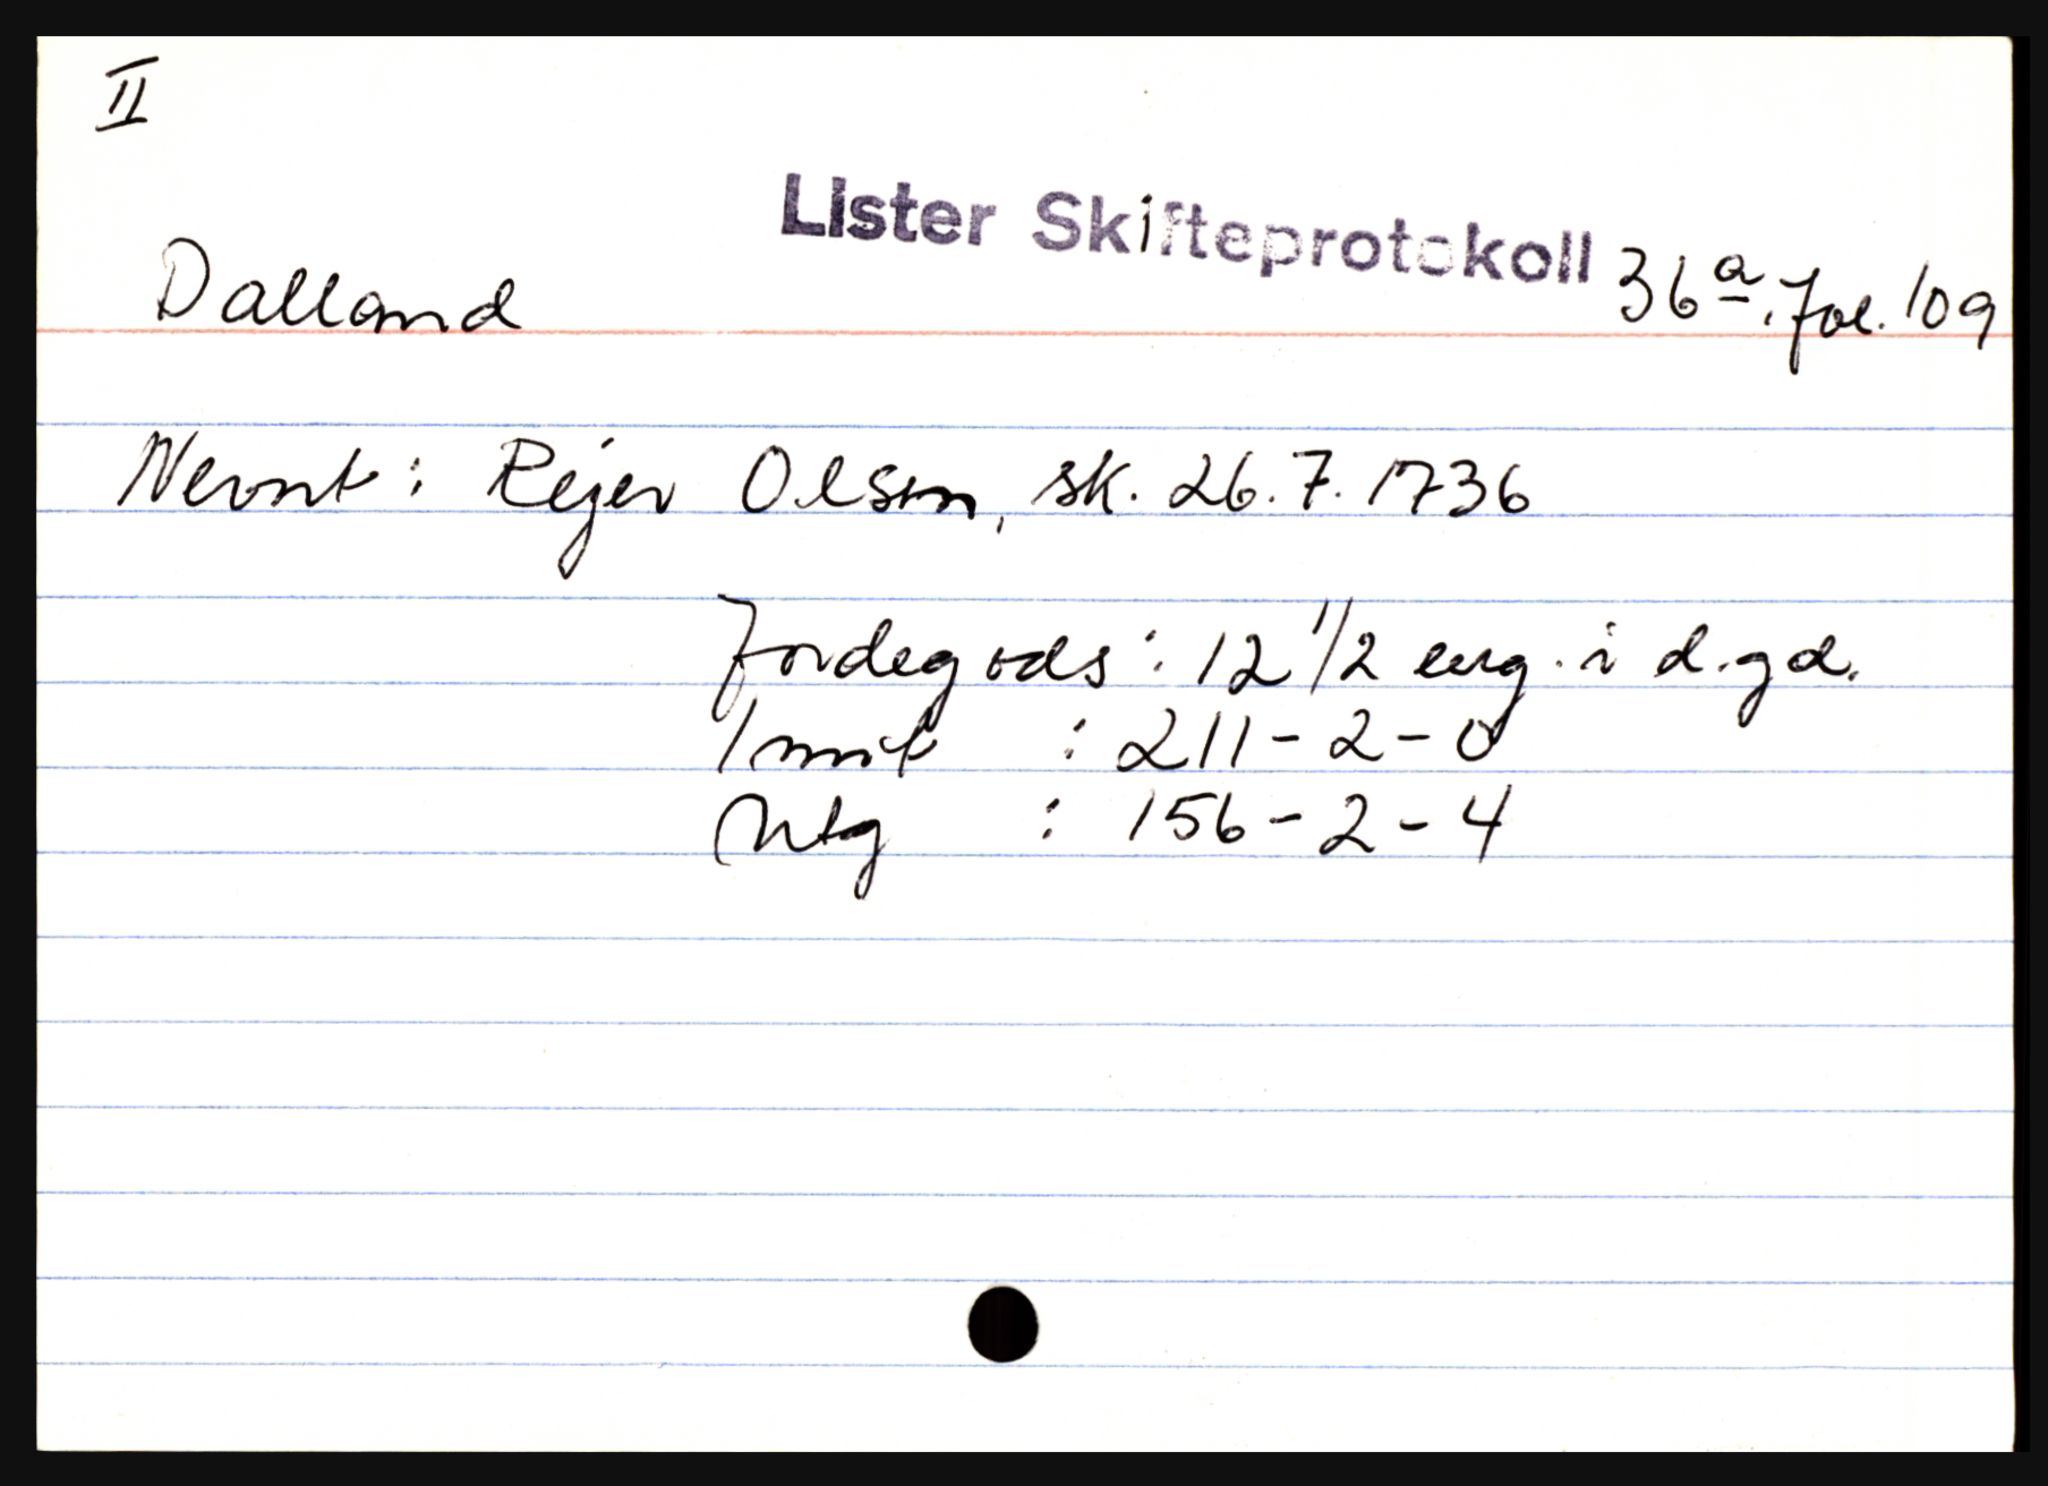 II
Lister Skifteprotokoll 36a. Fol. 109
Dalland
Nevnt: Rejer Olsen, sk. 26.7.1736
Jordegods: 12 1/2 eng. i d. gd.
Innt : 211-2-0
Utg : 156-2-4